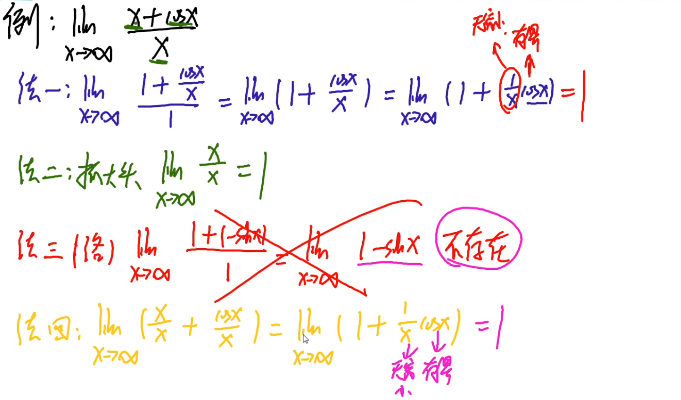 例: lim x→∞ (x+cosx)/x
无穷小 有界
法一: lim x→∞ (1+cosx/x)/1 = lim x→∞ (1+cosx/x) = lim x→∞ (1+1/x cosx) = 1
法二: 抓大头 lim x→∞ x/x = 1
法三(洛) lim x→∞ (1+(-sinx))/1 = lim x→∞ 1-sinx 不存在
法四: lim x→∞ (x/x + cosx/x) = lim x→∞ (1+1/x cosx) = 1
无穷小 有界